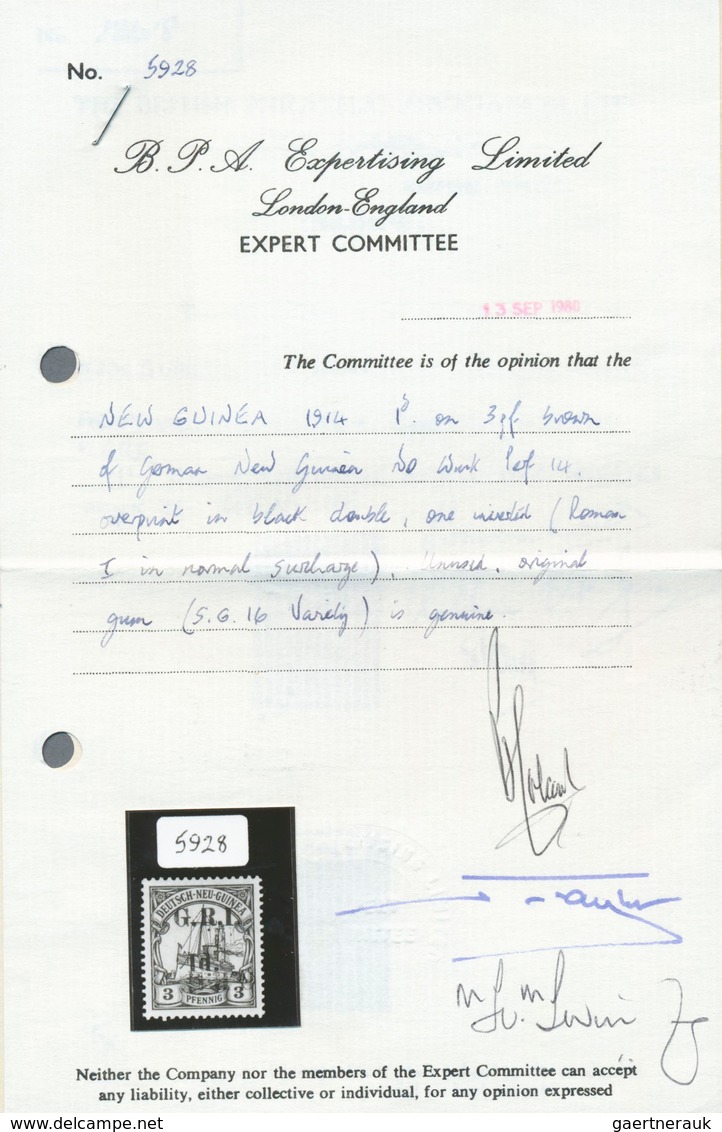 No. 5928
B. P. A. Expertising Limited
London-England
EXPERT COMMITTEE
13 SEP 1980
The Committee is of the opinion that the
NEW GUINEA 1914 1d. on 3pf brown
of German New Guinea No Wmk Perf 14.
overprint in black double, one inverted (Roman
I in normal surcharge), Unused, original
gum (S.G. 16 Variety) is genuine.
5928
DEUTSCH-NEU-GUINEA
G.R.I.
1d.
3 PFENNIG 3
Neither the Company nor the members of the Expert Committee can accept
any liability, either collective or individual, for any opinion expressed
gaertnerauk